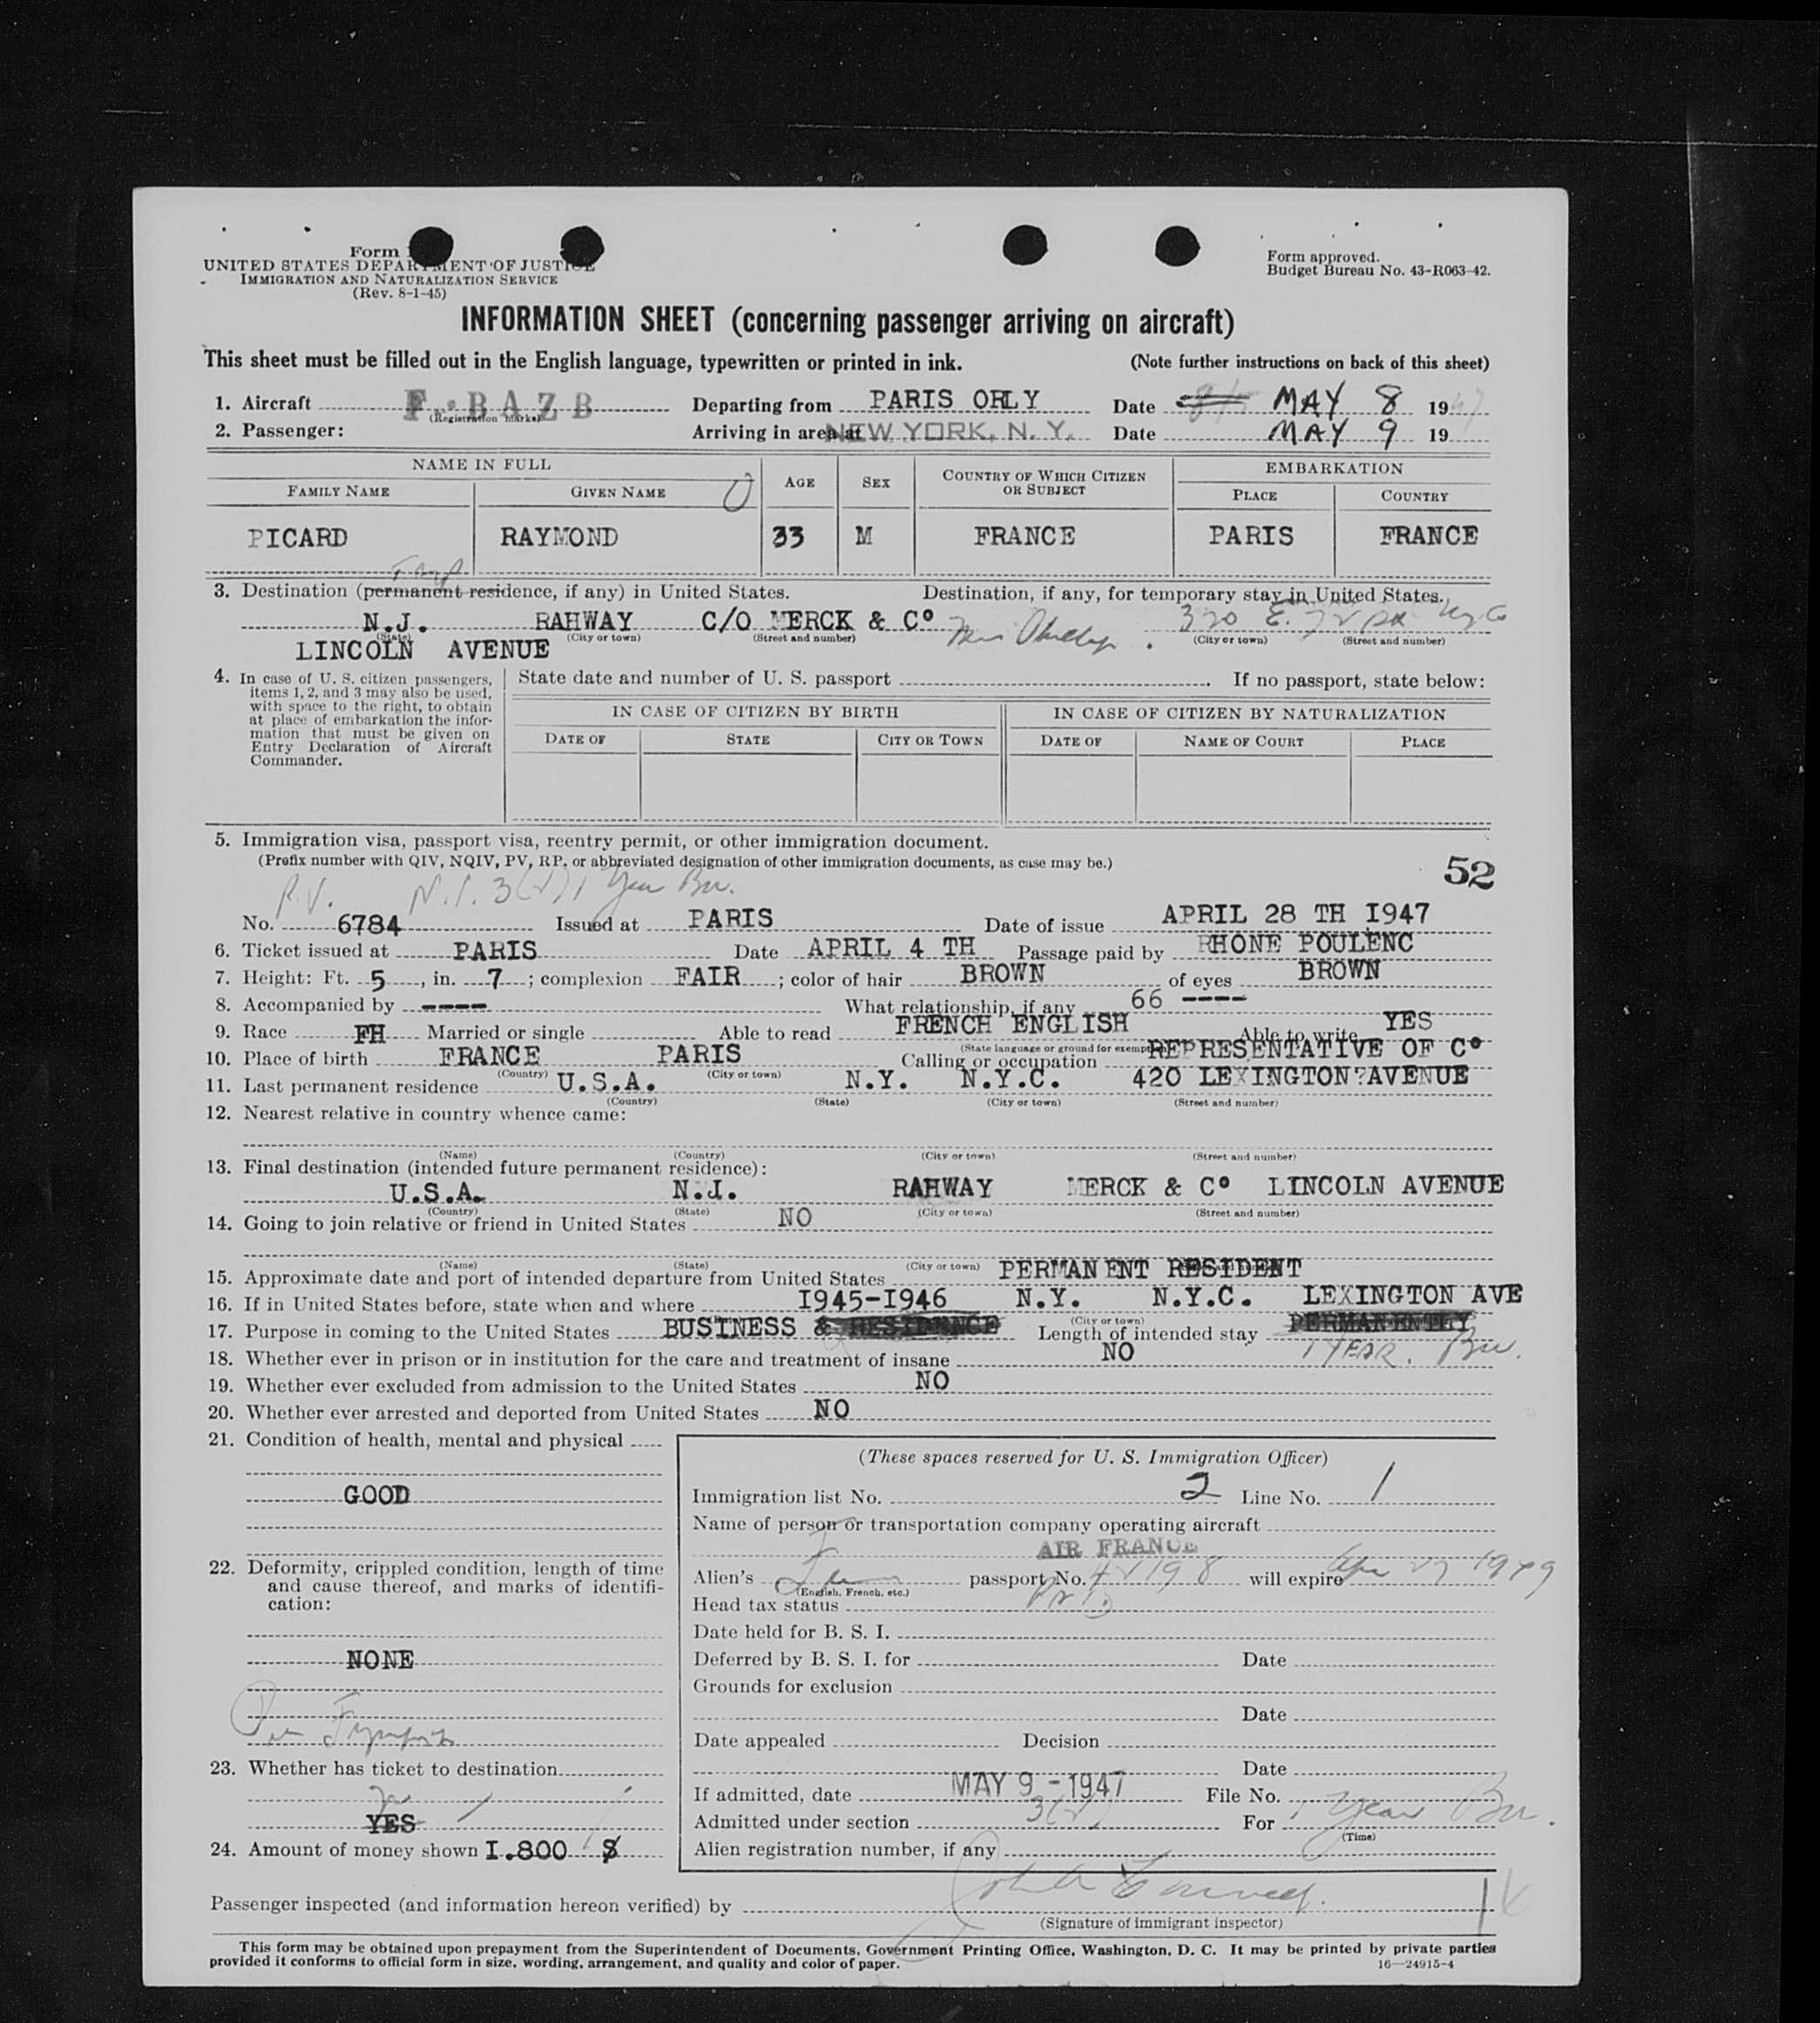 Form
UNITED STATES DEPARTMENT OF JUSTICE
IMMIGRATION AND NATURALIZATION SERVICE
(Rev. 8-1-45)
Form approved.
Budget Bureau No. 43-R063-42.
INFORMATION SHEET (concerning passenger arriving on aircraft)
This sheet must be filled out in the English language, typewritten or printed in ink. (Note further instructions on back of this sheet)
1. Aircraft F-BAZB Departing from PARIS ORLY Date MAY 8 1947
(Registration marks)
2. Passenger: Arriving in area at NEW YORK, N. Y. Date MAY 9 19
NAME IN FULL AGE SEX COUNTRY OF WHICH CITIZEN OR SUBJECT EMBARKATION
FAMILY NAME GIVEN NAME PLACE COUNTRY
PICARD RAYMOND 33 M FRANCE PARIS FRANCE
Temp
3. Destination (permanent residence, if any) in United States. Destination, if any, for temporary stay in United States.
N.J. RAHWAY C/O MERCK & Cº 320 E. 72
(State) (City or town) (Street and number) (City or town) (Street and number)
LINCOLN AVENUE
4. In case of U. S. citizen passengers, items 1, 2, and 3 may also be used, with space to the right, to obtain at place of embarkation the information that must be given on Entry Declaration of Aircraft Commander.
State date and number of U. S. passport . If no passport, state below:
IN CASE OF CITIZEN BY BIRTH IN CASE OF CITIZEN BY NATURALIZATION
DATE OF STATE CITY OR TOWN DATE OF NAME OF COURT PLACE
5. Immigration visa, passport visa, reentry permit, or other immigration document.
(Prefix number with QIV, NQIV, PV, RP, or abbreviated designation of other immigration documents, as case may be.)
52
P.V. 3(2) 1 Year Bu.
No. 6784 Issued at PARIS Date of issue APRIL 28 TH I947
6. Ticket issued at PARIS Date APRIL 4 TH Passage paid by RHONE POULENC
7. Height: Ft. 5, in. 7; complexion FAIR; color of hair BROWN of eyes BROWN
8. Accompanied by ---- What relationship, if any 66 ----
9. Race FH Married or single Able to read FRENCH ENGLISH Able to write YES
(State language or ground for exemption)
10. Place of birth FRANCE PARIS Calling or occupation REPRESENTATIVE OF Cº
(Country) (City or town)
11. Last permanent residence U.S.A. N.Y. N.Y.C. 420 LEXINGTON?AVENUE
(Country) (State) (City or town) (Street and number)
12. Nearest relative in country whence came:
(Name) (Country) (City or town) (Street and number)
13. Final destination (intended future permanent residence):
U.S.A. N.J. RAHWAY MERCK & Cº LINCOLN AVENUE
(Country) (State) (City or town) (Street and number)
14. Going to join relative or friend in United States NO
(Name) (State) (City or town)
15. Approximate date and port of intended departure from United States PERMANENT RESIDENT
16. If in United States before, state when and where I945-I946 N.Y. N.Y.C. LEXINGTON AVE
(City or town)
17. Purpose in coming to the United States BUSINESS & RESIDENCE Length of intended stay PERMANENTLY
1 YEAR. Bu.
18. Whether ever in prison or in institution for the care and treatment of insane NO
19. Whether ever excluded from admission to the United States NO
20. Whether ever arrested and deported from United States NO
21. Condition of health, mental and physical
GOOD
22. Deformity, crippled condition, length of time and cause thereof, and marks of identification:
NONE
23. Whether has ticket to destination
YES
24. Amount of money shown I.800 $
(These spaces reserved for U. S. Immigration Officer)
Immigration list No. 2 Line No. 1
Name of person or transportation company operating aircraft
AIR FRANCE
Alien's passport No. will expire 27 1949
(English, French, etc.)
Head tax status
Date held for B. S. I.
Deferred by B. S. I. for Date
Grounds for exclusion
Date
Date appealed Decision
Date
If admitted, date MAY 9 - 1947 File No.
Admitted under section 3(2) For 1 Year Bu.
(Time)
Alien registration number, if any
Passenger inspected (and information hereon verified) by
(Signature of immigrant inspector)
This form may be obtained upon prepayment from the Superintendent of Documents, Government Printing Office, Washington, D. C. It may be printed by private parties
provided it conforms to official form in size, wording, arrangement, and quality and color of paper. 16—24915-4